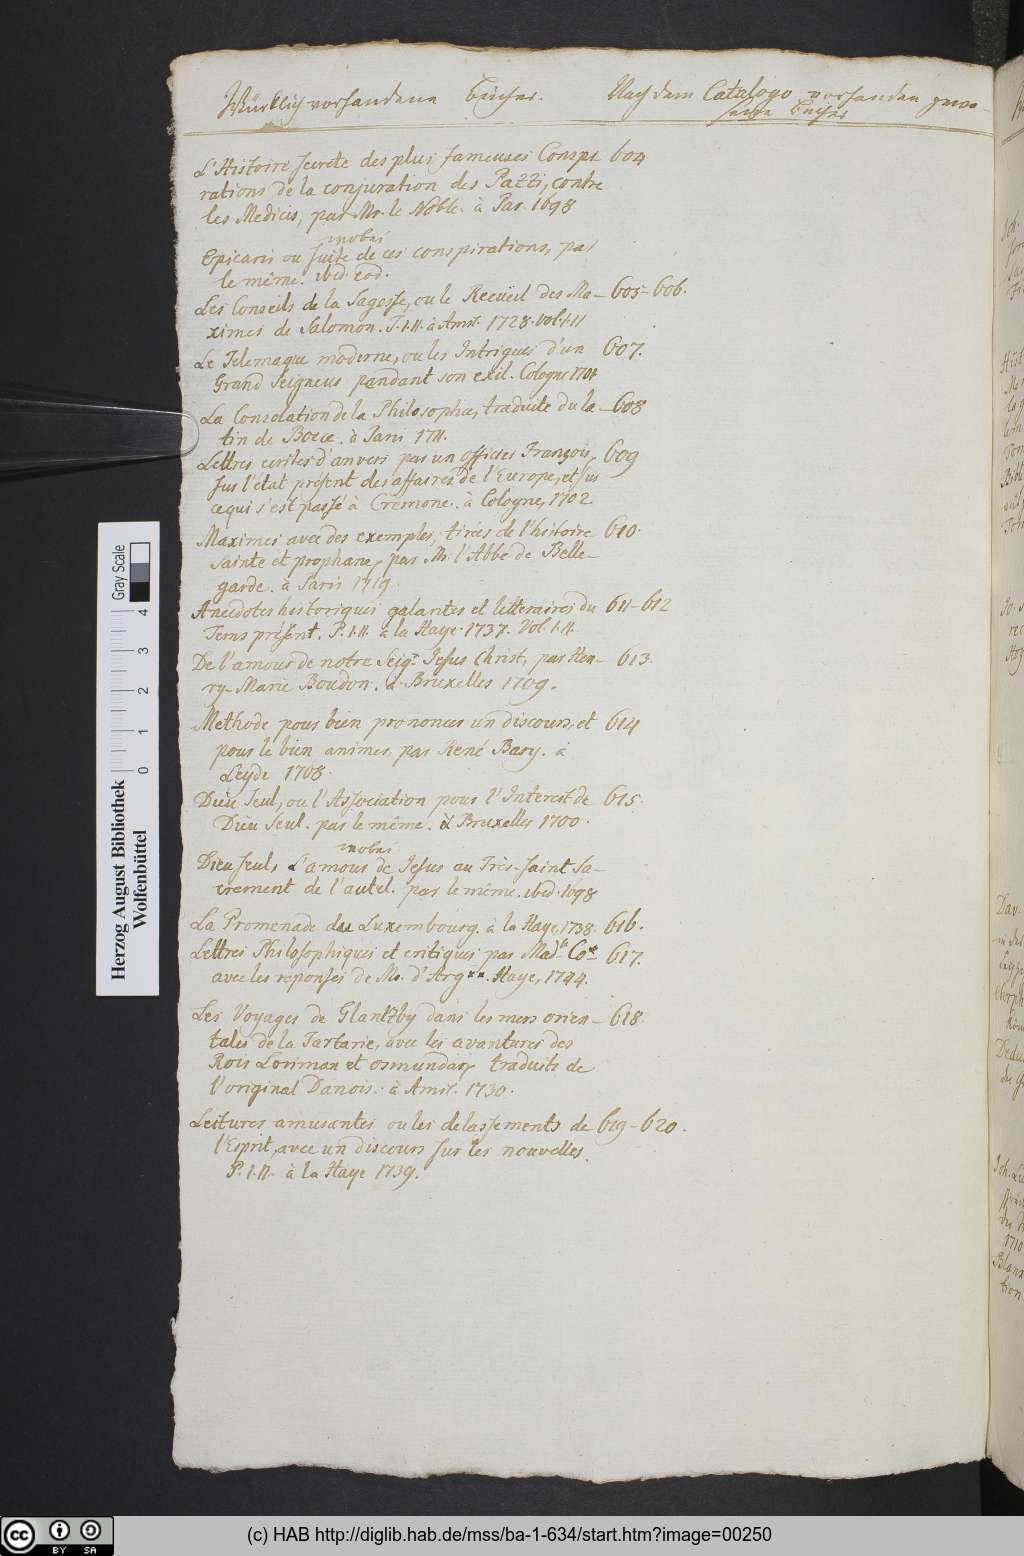 Würklich vorhandene Bücher.
Nach dem Catalogo vorhanden gewe-
sene Bücher
L'Histoire secrete des plus fameuses Conspi- 604
rations de la conjuration des Pazzi, contre
les Medicis, par Mr. le Noble. à Par. 1698
Epicaris ou suite de ces conspirations, par
le même. ibid. eod.
Les Conseils de la Sagesse, ou le Recüeil des Ma- 605-606.
ximes de Salomon. T. I. II. à Amst. 1728. Vol. I. II
Le Telemaque moderne, ou les Intrigues d'un 607.
Grand Seigneur pendant son exil. Cologne 1701
La Consolation de la Philosophie, traduite du la- 608
tin de Boece. à Paris 1711.
Lettres ecrites d'anvers par un officier François, 609
sur l'état présent des affaires de l'Europe, et sur
ce qui s'est passé à Cremone. à Cologne, 1702
Maximes avec des exemples, tirées de l'histoire 610.
sainte et prophane, par Mr. l'Abbé de Belle-
garde. à Paris 1719.
Anecdotes historiques galantes et litteraires du 611-612
Tems présent. P. I. II. à la Haye 1737. Vol. I. II.
De l'amour de notre Seigr. Jesus Christ, par Hen- 613.
ry-Marie Boudon. à Bruxelles 1709.
Methode pour bien prononcer un discours, et 614
pour le bien animer, par René Bary. à
Leyde 1708.
Dieu Seul, ou l'Association pour l'Interest de 615.
Dieu Seul. par le même. à Bruxelles 1700.
Dieu seul, L'amour de Jesus au Très-saint Sa-
crement de l'autel. par le même. ibid. 1698
La Promenade du Luxembourg. à la Haye, 1738. 616.
Lettres Philosophiques et critiques par Madlle Co** 617.
avec les reponses de Mr. d'Arg**. Haye, 1744.
Les Voyages de Glantzby dans les mers orien- 618.
tales de la Tartarie, avec les avantures des
Rois Loriman et Osmundar, traduits de
l'original Danois. à Amst. 1730.
Lectures amusantes ou les delassements de 619-620.
l'Esprit, avec un discours sur les nouvelles.
P. I. II. à la Haye 1739.
Gray Scale
4
3
2
1
0
Herzog August Bibliothek
Wolfenbüttel
cc BY SA
(c) HAB http://diglib.hab.de/mss/ba-1-634/start.htm?image=00250